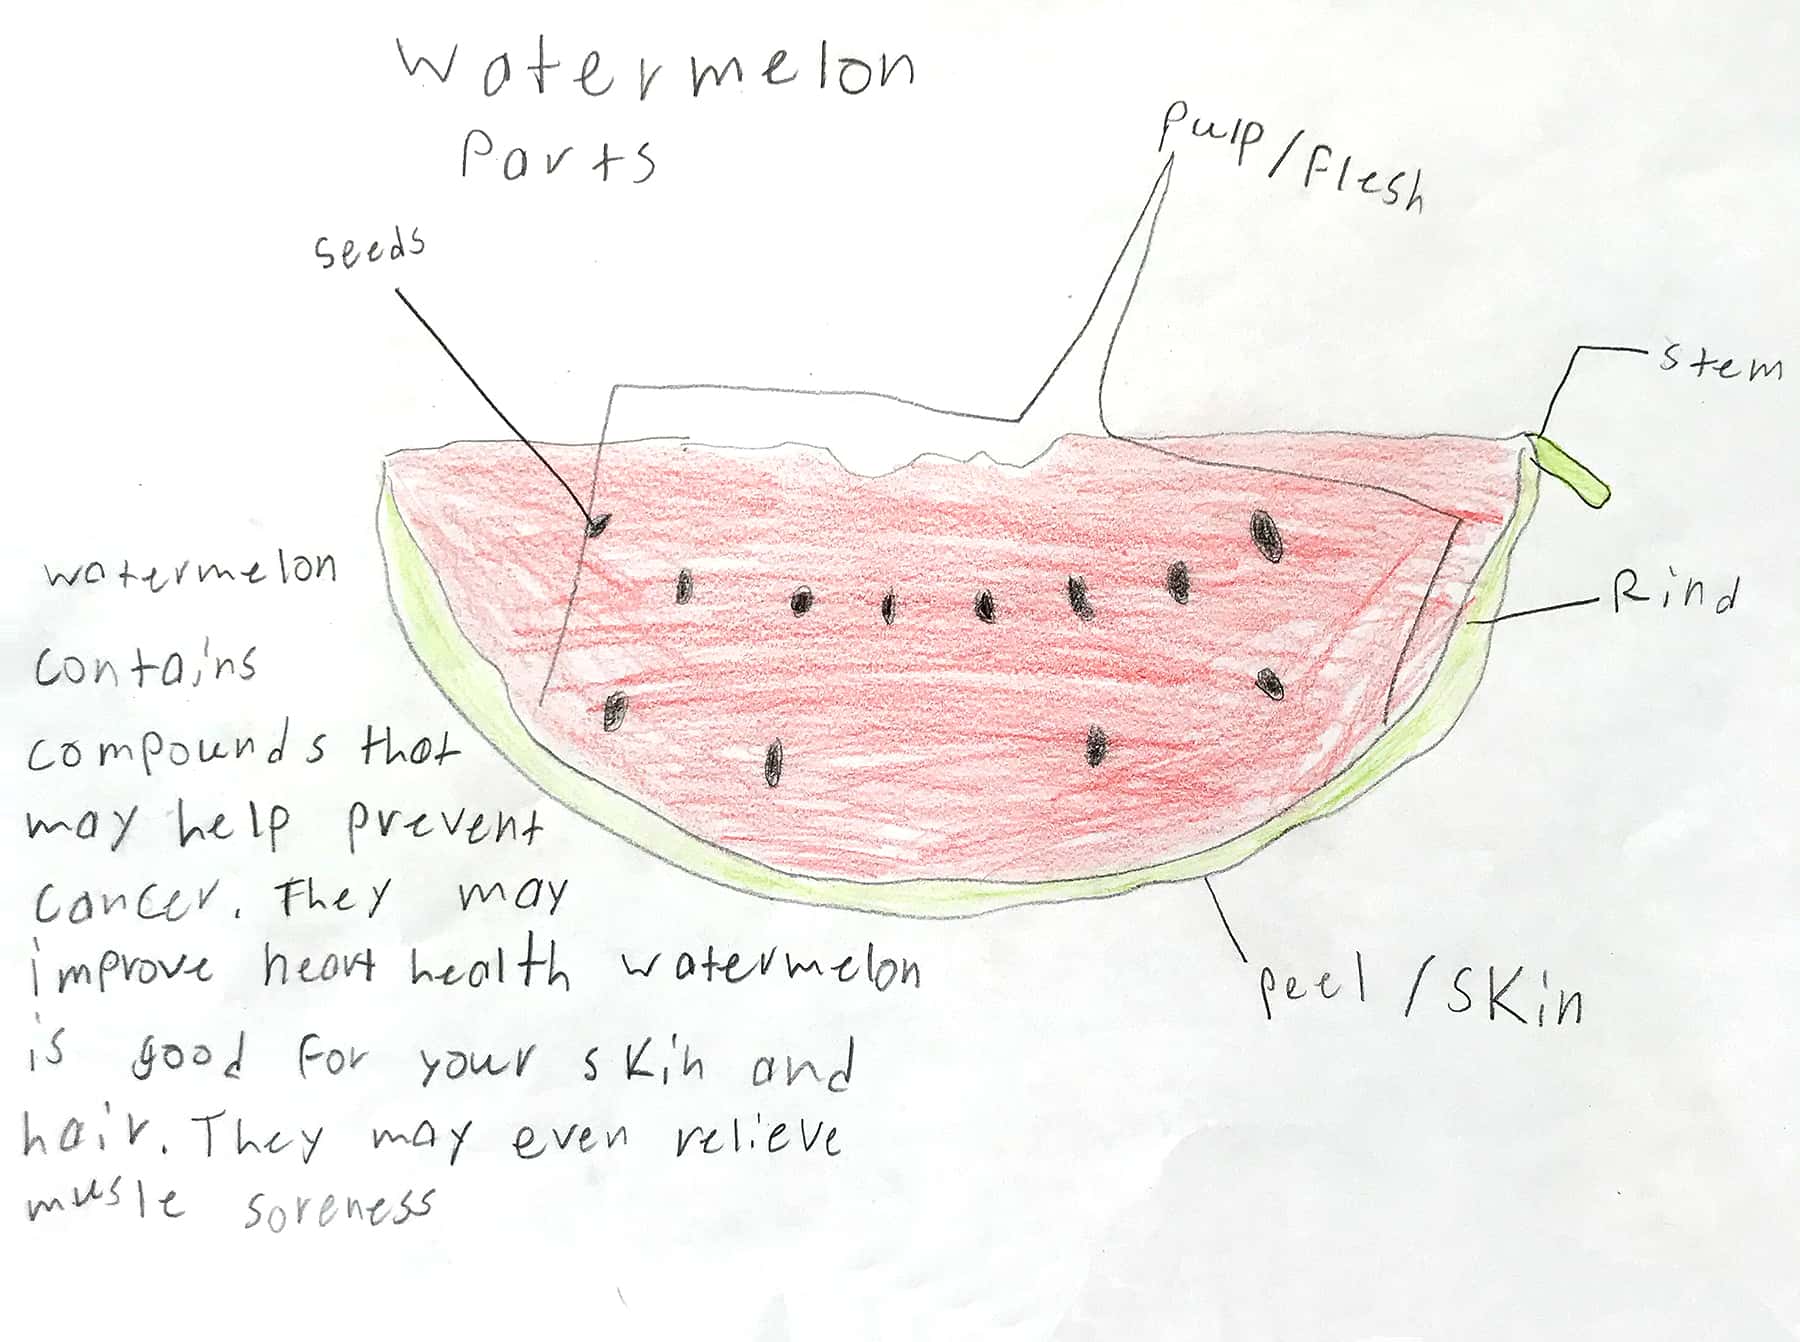 Watermelon
Parts
Pulp/Flesh
seeds
stem
Rind
Peel/Skin
watermelon
contains
compounds that
may help prevent
cancer. They may
improve heart health watermelon
is good for your skin and
hair. They may even relieve
musle soreness